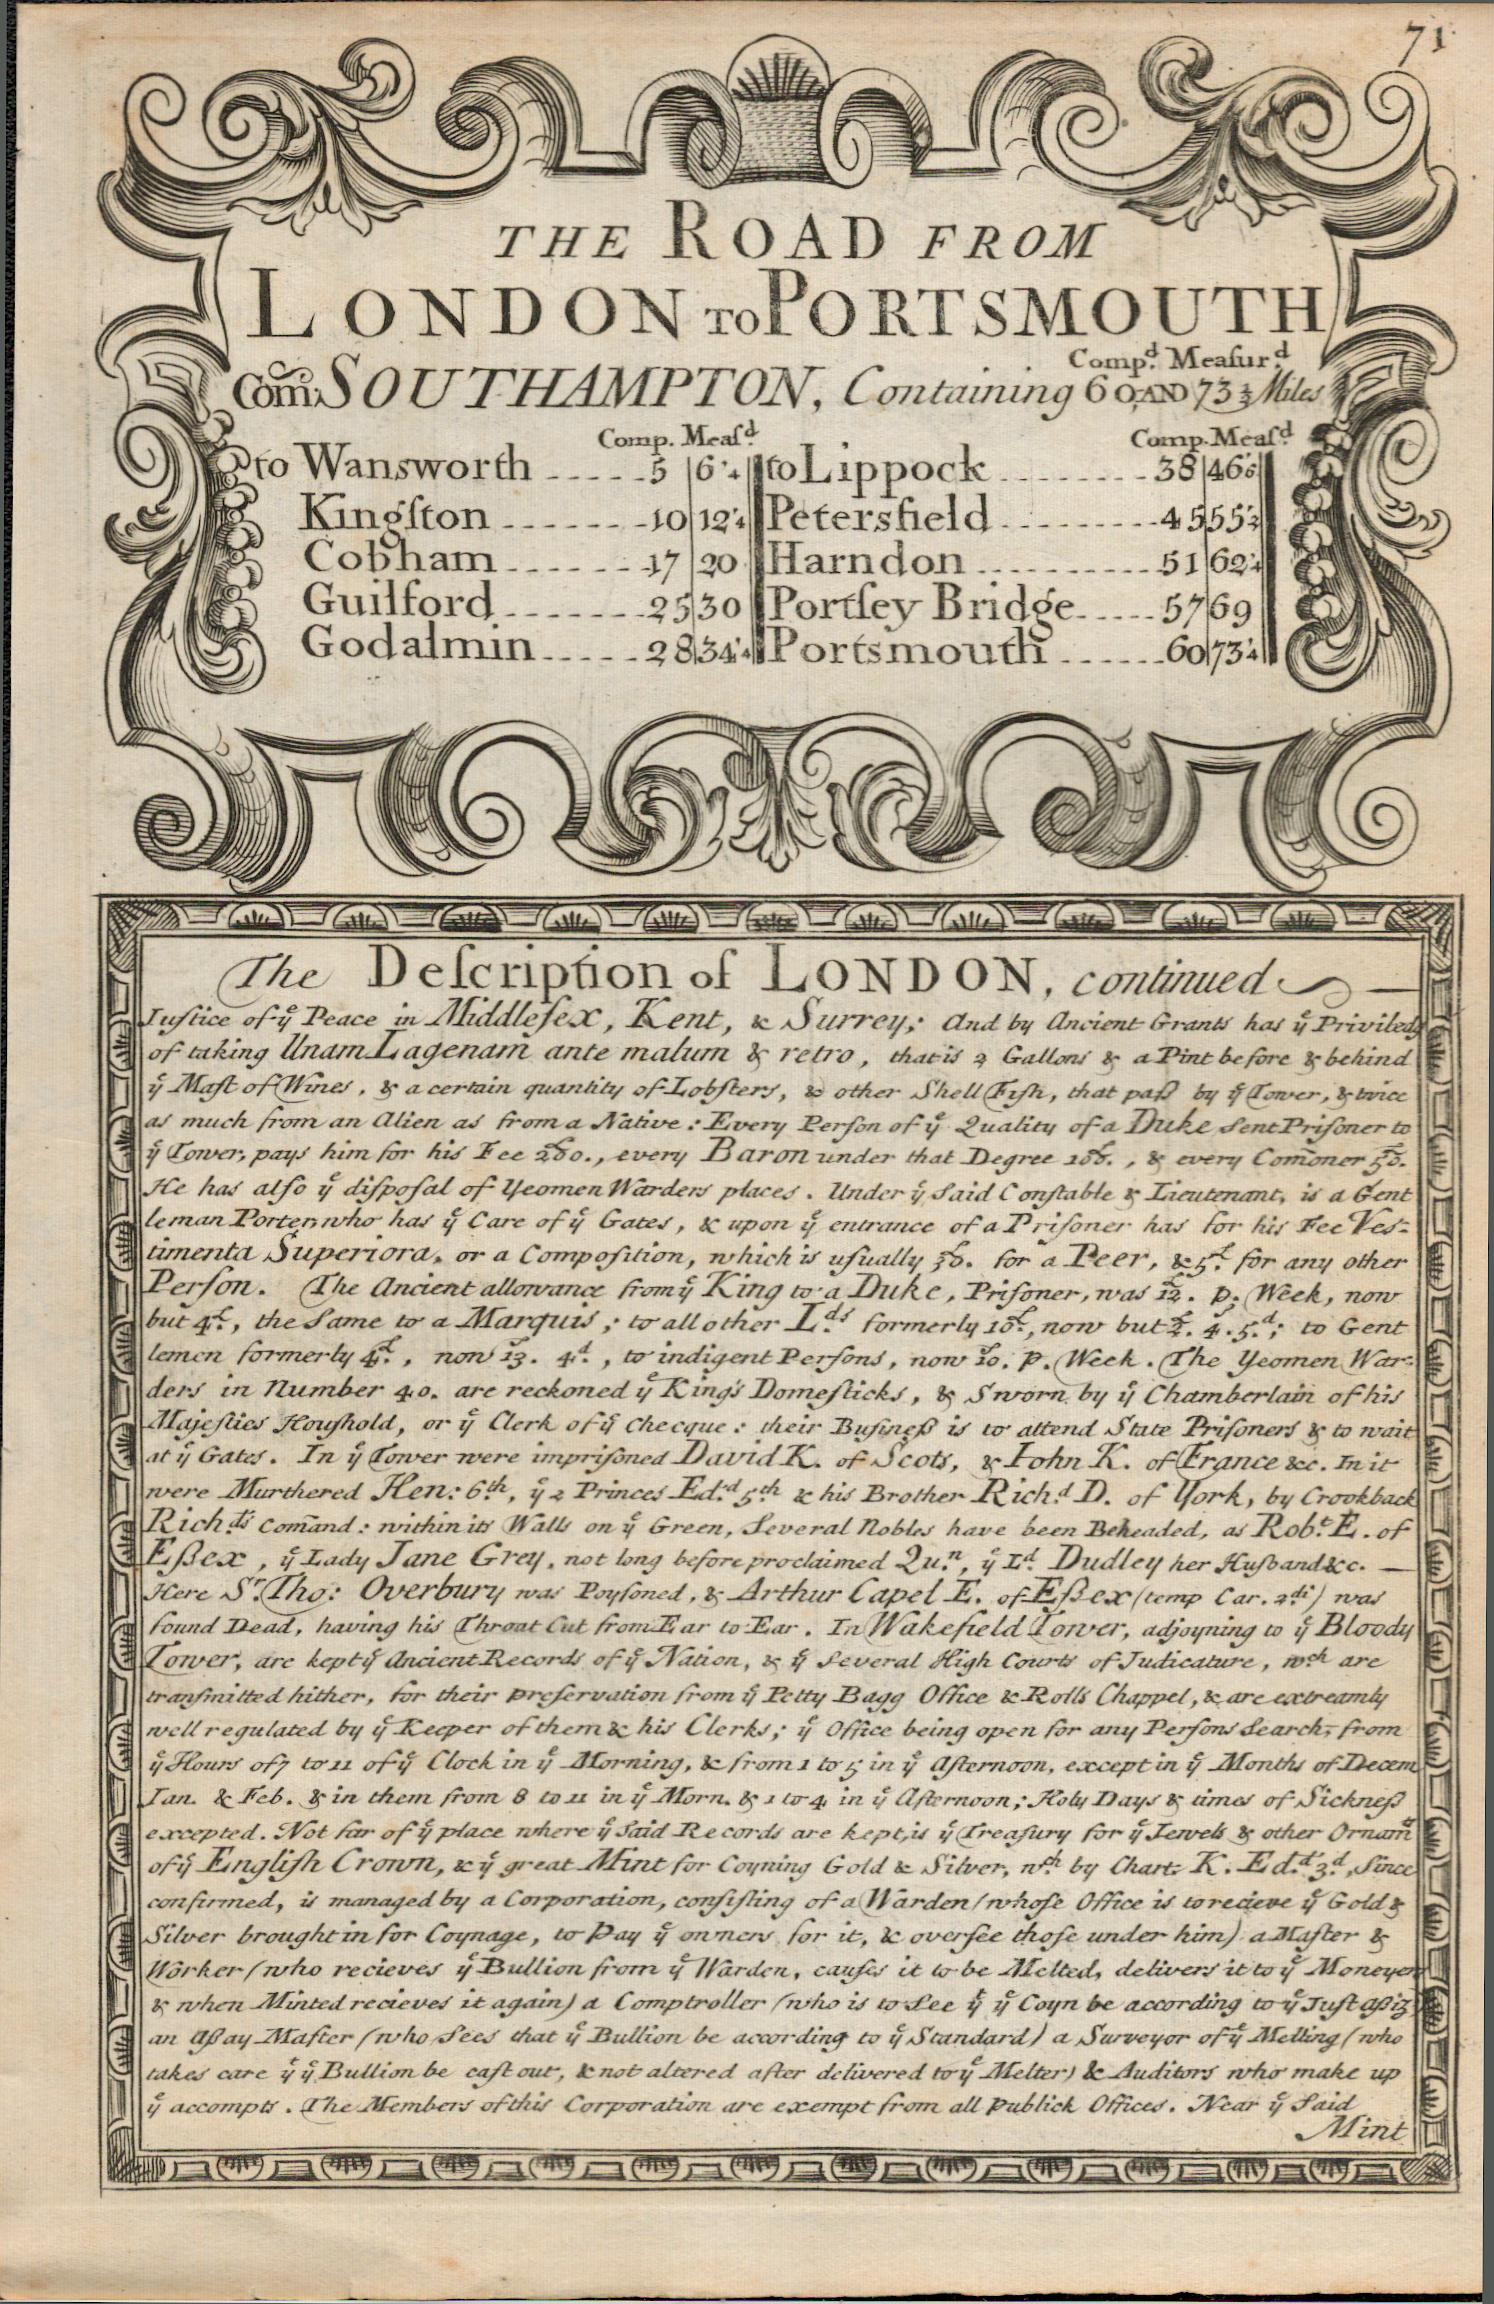 71
THE ROAD FROM
LONDON TO PORTSMOUTH
Comp.d Measur.d
Com: SOUTHAMPTON, Containing 60 AND 73 ½ Miles
Comp. Meas.d Comp. Meas.d
to Wansworth 5 6'4 to Lippock 38 46'6
Kingston 10 12'4 Petersfield 45 55'2
Cobham 17 20 Harndon 51 62'4
Guilford 25 30 Portsey Bridge 57 69
Godalmin 28 34'4 Portsmouth 60 73'4
The Description of LONDON, continued
Justice of ye Peace in Middlesex, Kent, & Surrey; And by Ancient Grants has ye Priviledg
of taking Unam Lagenam ante malum & retro, that is 2 Gallons & a Pint before & behind
ye Mast of Wines, & a certain quantity of Lobsters, & other Shell Fish, that pass by ye Tower, & twice
as much from an Alien as from a Native: Every Person of ye Quality of a Duke sent Prisoner to
ye Tower, pays him for his Fee 200£., every Baron under that Degree 100£., & every Com̄oner 50£.
He has also ye disposal of Yeomen Warders places. Under ye said Constable & Lieutenant, is a Gent
leman Porter, who has ye Care of ye Gates, & upon ye entrance of a Prisoner has for his Fee Ves=
timenta Superiora, or a Composition, which is usually 30£. for a Peer, & 5£. for any other
Person. The Ancient allowance from ye King to a Duke, Prisoner, was 12£. p. Week, now
but 4£., the same to a Marquis; to all other L.ds formerly 10£., now but 2£. 4s. 5.d; to Gent
lemen formerly 4£., now 13s. 4d., to indigent Persons, now 10s. p. Week. The Yeomen War=
ders in Number 40. are reckoned ye King's Domesticks, & Sworn by ye Chamberlain of his
Majesties Houshold, or ye Clerk of ye Checque: their Business is to attend State Prisoners & to wait
at ye Gates. In ye Tower were imprisoned David K. of Scots, & Iohn K. of France &c. In it
were Murthered Hen: 6th, ye 2 Princes Ed.d 5th & his Brother Rich.d D. of York, by Crookback
Rich.ds Com̄and: within its Walls on ye Green, several Nobles have been Beheaded, as Rob.t E. of
Essex, ye Lady Jane Grey, not long before proclaimed Qu.n, ye L.d Dudley her Husband &c.
Here S.r Tho: Overbury was Poysoned, & Arthur Capel E. of Essex (temp Car. 2di) was
found Dead, having his Throat Cut from Ear to Ear. In Wakefield Tower, adjoyning to ye Bloody
Tower, are kept ye Ancient Records of ye Nation, & ye several High Courts of Judicature, wch are
transmitted hither, for their preservation from ye Petty Bagg Office & Rolls Chappel, & are extreamly
well regulated by ye Keeper of them & his Clerks; ye Office being open for any Persons search, from
ye Hours of 7 to 11 of ye Clock in ye Morning, & from 1 to 5 in ye Afternoon, except in ye Months of Decem
Ian. & Feb. & in them from 8 to 11 in ye Morn. & 1 to 4 in ye Afternoon; Holy Days & times of Sickness
excepted. Not far of ye place where ye said Records are kept, is ye Treasury for ye Jewels & other Ornam.ts
of ye English Crown, & ye great Mint for Coyning Gold & Silver, wch by Chart: K. Ed.d 3.d, since
confirmed, is managed by a Corporation, consisting of a Warden (whose Office is to recieve ye Gold &
Silver brought in for Coynage, to Pay ye owners for it, & oversee those under him) a Master &
Worker (who recieves ye Bullion from ye Warden, causes it to be Melted, delivers it to ye Moneyers
& when Minted recieves it again) a Comptroller (who is to see yt ye Coyn be according to ye Just Assiz
an Assay Master (who sees that ye Bullion be according to ye Standard) a Surveyor of ye Melting (who
takes care yt ye Bullion be cast out, & not altered after delivered to ye Melter) & Auditors who make up
ye accompts. The Members of this Corporation are exempt from all publick Offices. Near ye said
Mint